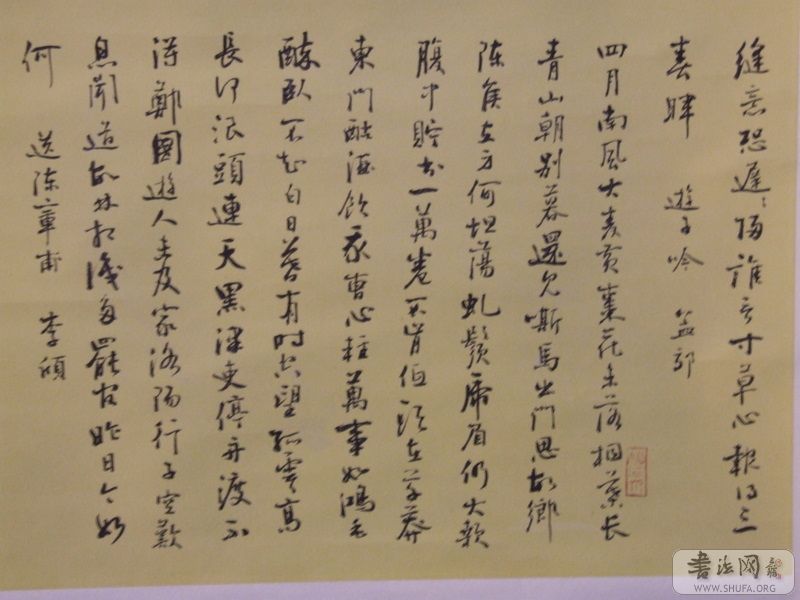 縫意恐遲〻歸誰言寸草心報得三
春暉 遊子吟 孟郊
四月南風大麦黃棗花未落桐葉长
青山朝別暮還見嘶馬出門思故鄉
陈侯立身何坦蕩虬鬚虎眉仍大顙
腹中貯书一萬卷不肯低頭在草莽
東門酤酒飲我曹心輕萬事如鴻毛
醉臥不知白日暮有時空望孤雲高
長河浪頭連天黑津吏停舟渡不
得鄭國遊人未及家洛陽行子空歎
息聞道故林相識多罷官昨日今如
何 送陈章甫 李頎
書法网
WWW.SHUFA.ORG